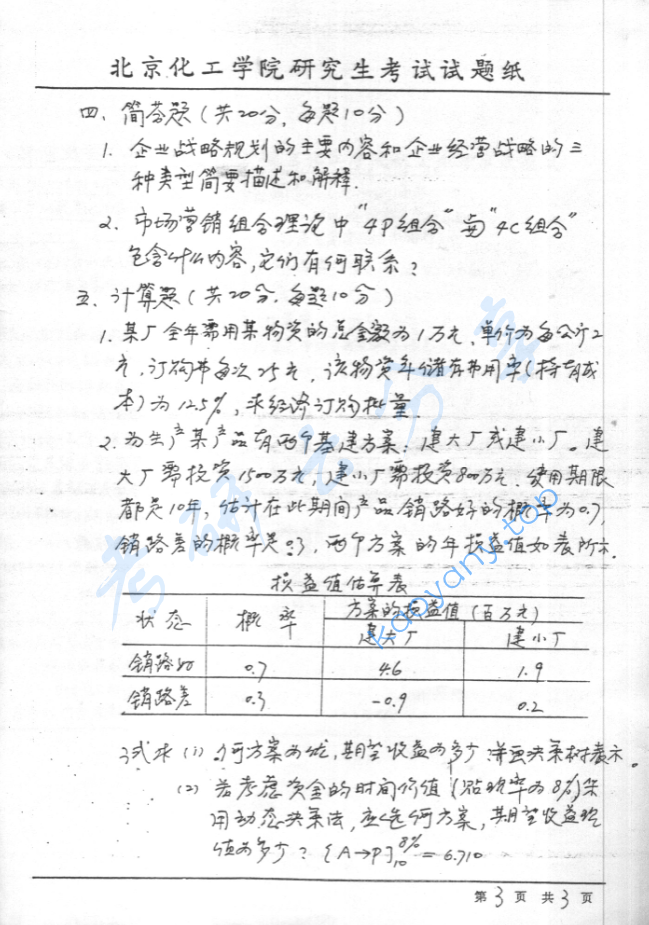 北京化工学院研究生考试试题纸
四、简答题(共20分,每题10分)
1. 企业战略规划的主要内容和企业经营战略的三
种类型简要描述和解释.
2. 市场营销组合理论中"4P组合"与"4C组合"
包含什么内容,它们有何联系?
五、计算题(共20分.每题10分)
1. 某厂全年需用某物资的总金额为1万元、单价为每公斤2
元,订购费每次25元,该物资年储存费用率(持有成
本)为12.5%,求经济订购批量
2. 为生产某产品有两个基建方案:建大厂或建小厂。建
大厂需投资1500万元,建小厂需投资800万元.使用期限
都是10年,估计在此期间产品销路好的概率为0.7,
销路差的概率是0.3,两个方案的年损益值如表所示.
损益值估算表
状态 概率 方案的损益值(百万元)
建大厂 建小厂
销路好 0.7 4.6 1.9
销路差 0.3 -0.9 0.2
试求(1) 何方案为优,期望收益为多少 并画决策树表示。
(2) 若考虑资金的时间价值(贴现率为8%)采
用动态决策法,应选何方案,期望收益现
值为多少?[A→P]8%10=6.710
第3页 共3页
考研云分享
kaoyany.top